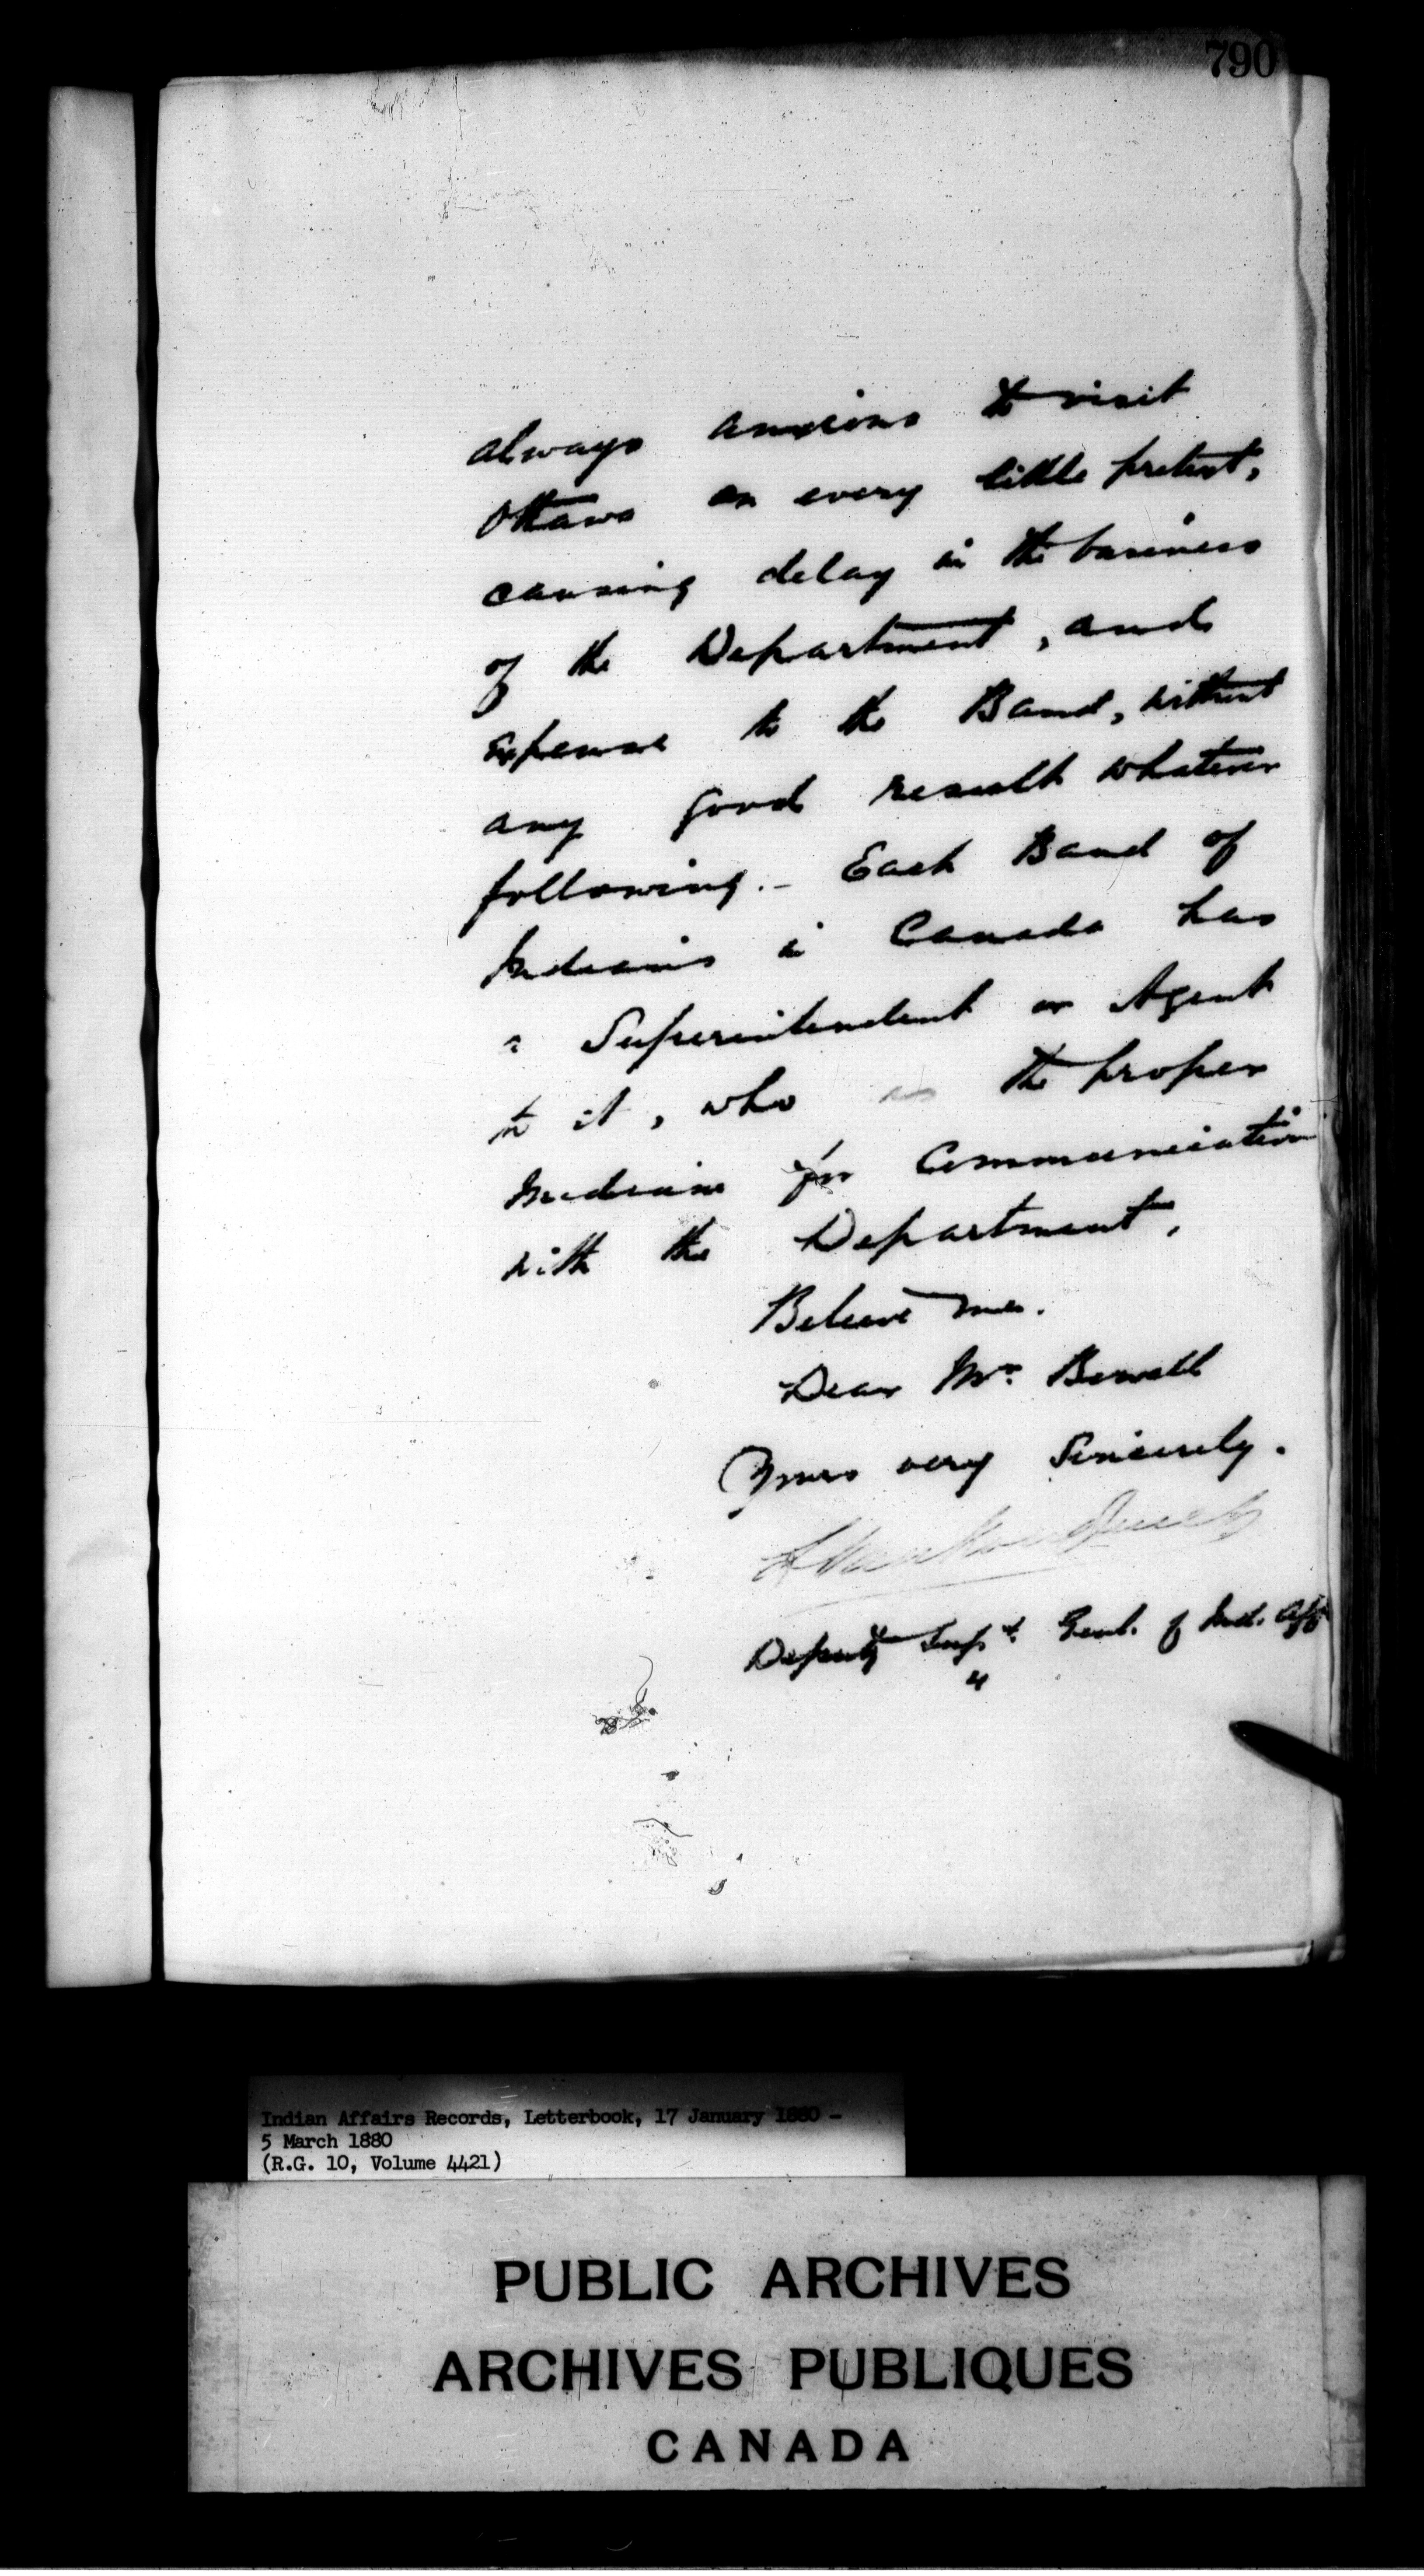 790
always anxious to visit
Ottawa on every little pretext,
causing delay in the business
of the Department, and
expense to the Band, without
any good result whatever
following. – Each Band of
Indians in Canada has
a Superintendent or Agent
to it, who is the proper
medium for Communication
with the Department.
Believe me.
Dear Mr. Bowell
Yours very Sincerely.
L Vankoughnet
Deputy Supt. Genl. of Ind. Aff
Indian Affairs Records, Letterbook, 17 January 1880 -
5 March 1880
(R.G. 10, Volume 4421)
PUBLIC ARCHIVES
ARCHIVES PUBLIQUES
CANADA